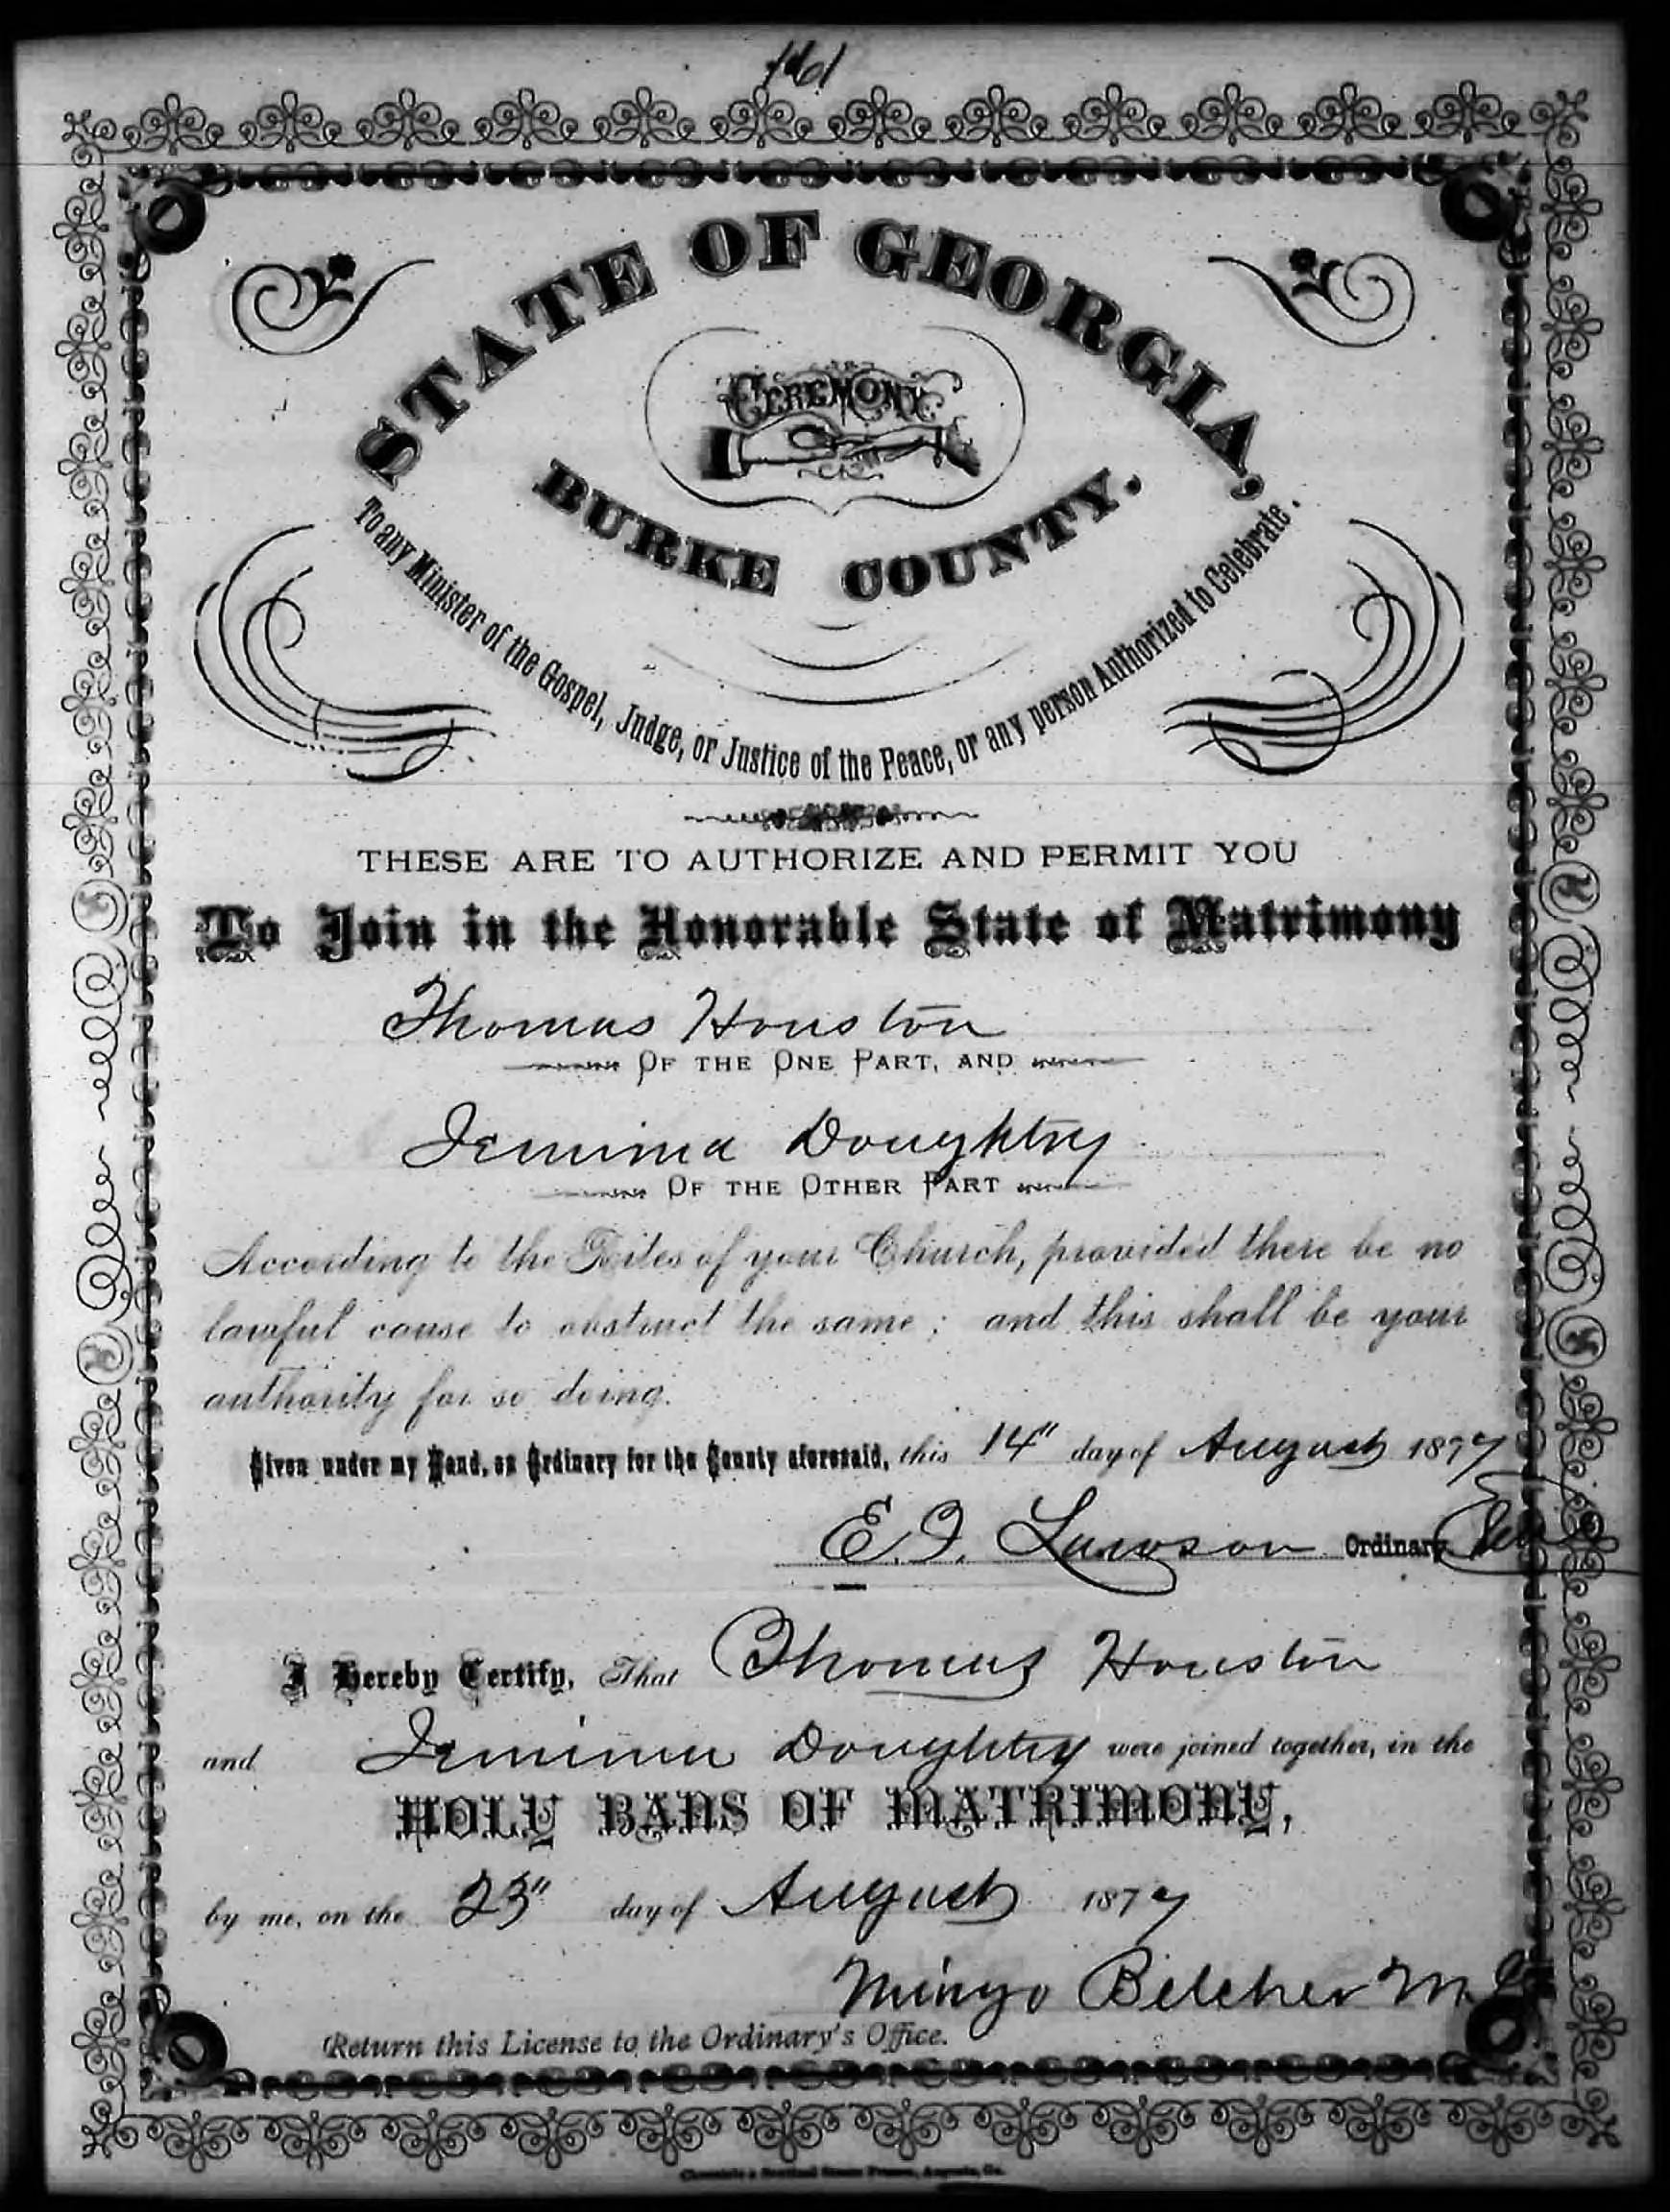 161
STATE OF GEORGIA,
CEREMONY
BURKE COUNTY.
To any Minister of the Gospel, Judge, or Justice of the Peace, or any person Authorized to Celebrate.
THESE ARE TO AUTHORIZE AND PERMIT YOU
To Join in the Honorable State of Matrimony
Thomas Houston
OF THE ONE PART, AND
Jemima Doughtry
OF THE OTHER PART
According to the Rites of your Church, provided there be no
lawful cause to obstruct the same; and this shall be your
authority for so doing.
Given under my Hand, as Ordinary for the County aforesaid, this 14" day of August 1877
E. F. Lawson Ordinary
I Hereby Certify, That Thomas Houston
and Jemima Doughtry were joined together, in the
HOLY BANS OF MATRIMONY,
by me, on the 23" day of August 1877
Mingo Belcher M.G.
Return this License to the Ordinary's Office.
Chronicle & Sentinel Steam Presses, Augusta, Ga.